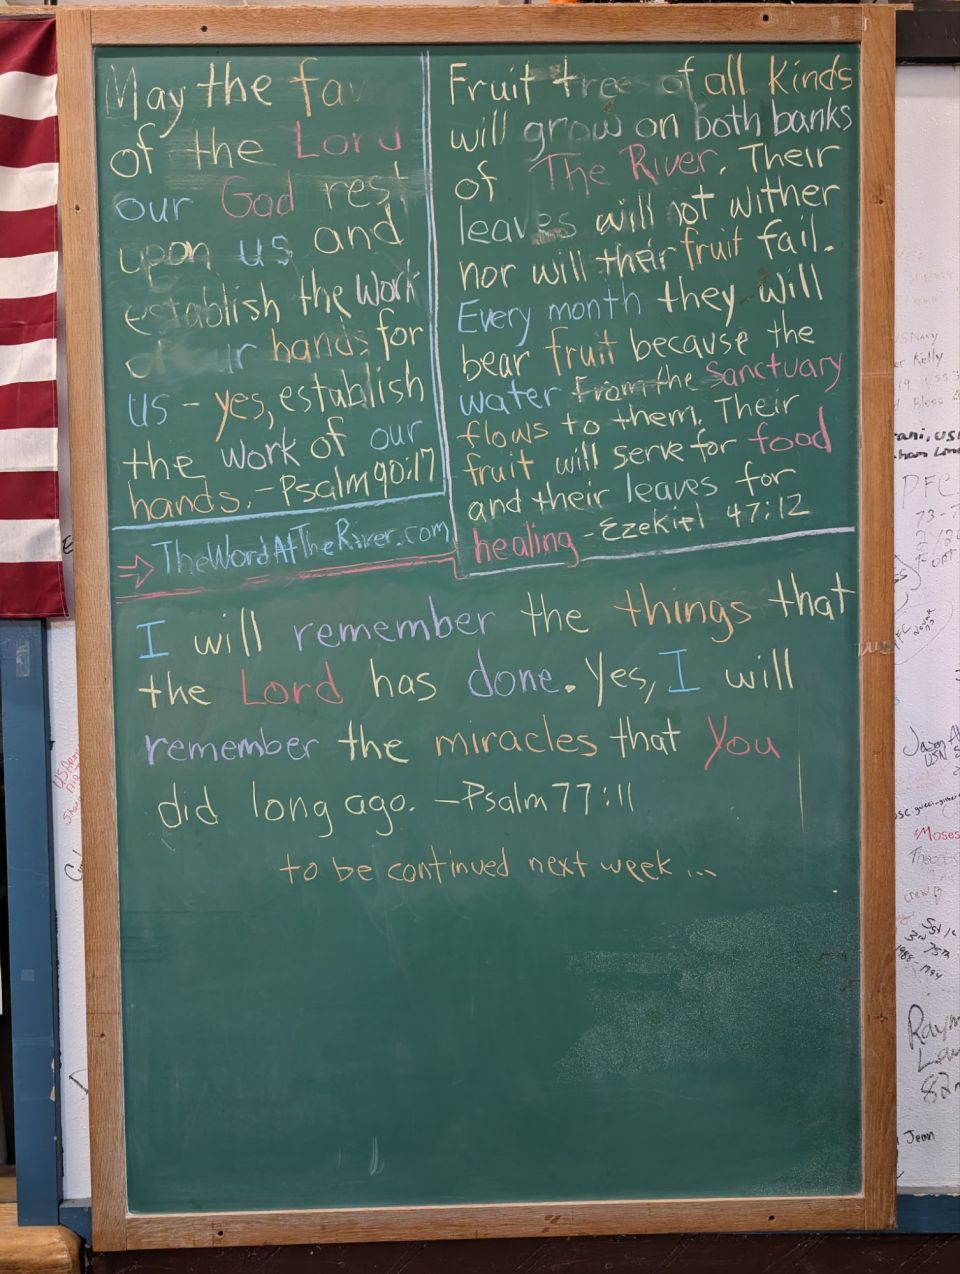 May the fav
of the Lord
our God rest
upon us and
establish the work
of our hands for
us - yes, establish
the work of our
hands. - Psalm 90:17
TheWordAtTheRiver.com
Fruit trees of all kinds
will grow on both banks
of The River. Their
leaves will not wither
nor will their fruit fail.
Every month they will
bear fruit because the
water from the Sanctuary
flows to them. Their
fruit will serve for food
and their leaves for
healing - Ezekiel 47:12
I will remember the things that
the Lord has done. Yes, I will
remember the miracles that You
did long ago. - Psalm 77:11
to be continued next week...
Kelly
PFC
Moses
Jean